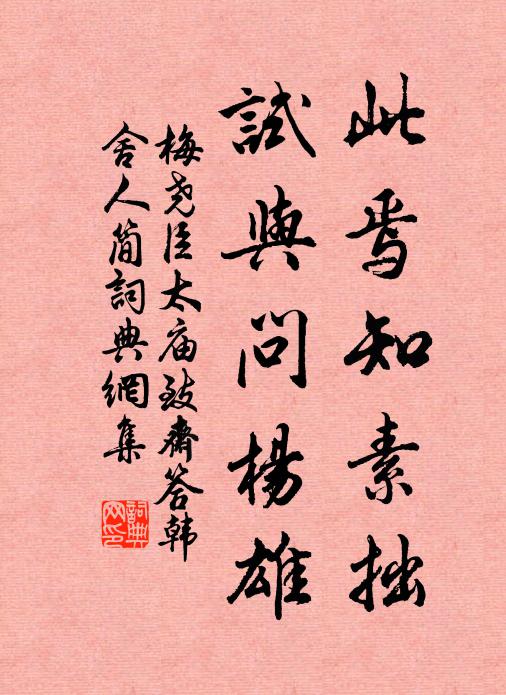 此焉知素拙
試與問楊雄
梅尧臣太庙致齋答韩
舍人简詞典網集
詞典网印